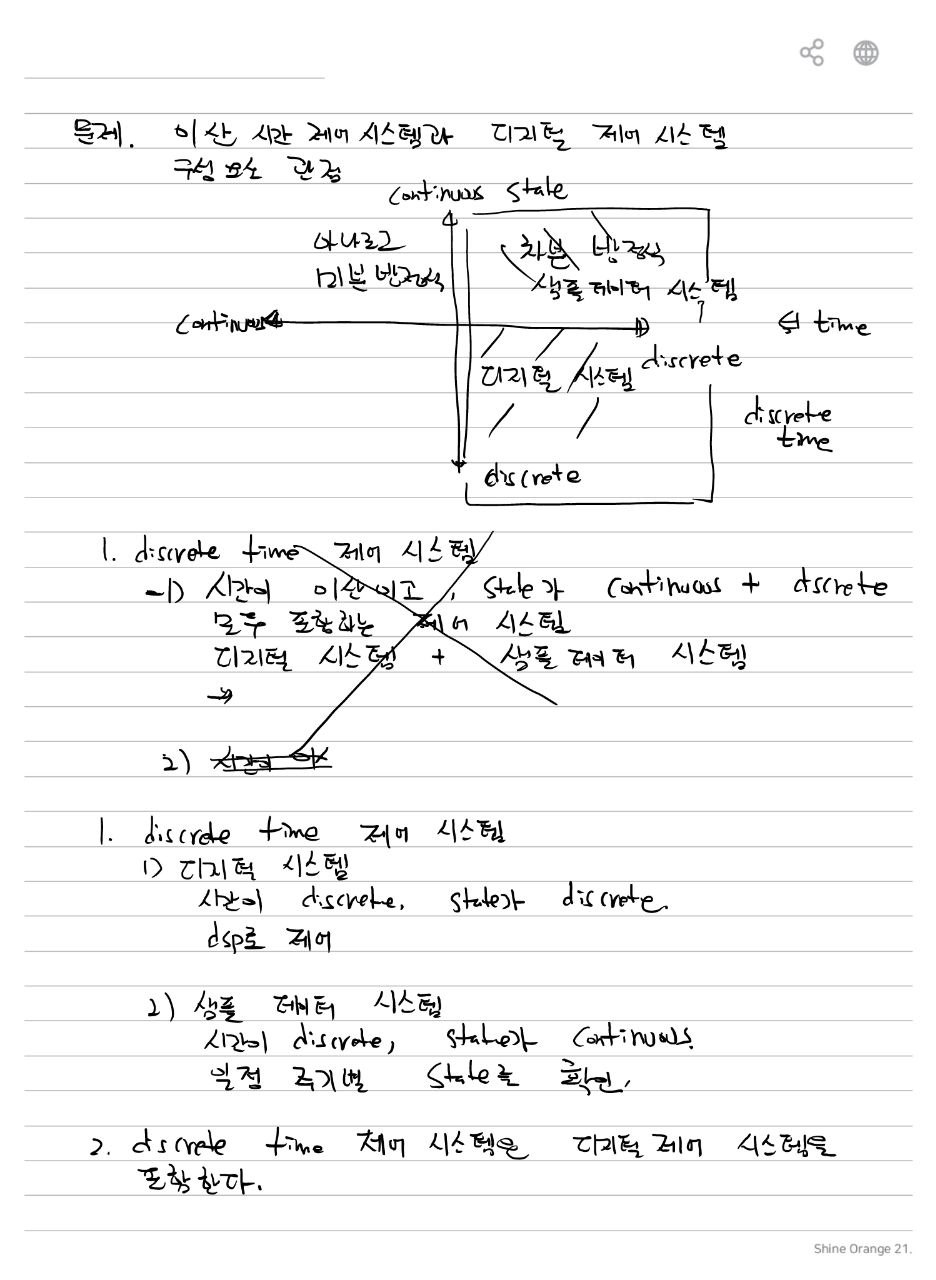 문제. 이산 시간 제어 시스템과 디지털 제어 시스템
구성 요소 관점
continuous state
아나로그 차분 방정식
미분 방정식 샘플 데이터 시스템
continuous time
디지털 시스템 discrete
discrete
time
discrete
1. discrete time 제어 시스템
-1) 시간이 이산이고, state가 continuous + discrete
모두 포함하는 제어 시스템
디지털 시스템 + 샘플 데이터 시스템
→
2) 시간이 이
1. discrete time 제어 시스템
1) 디지털 시스템
시간이 discrete, state가 discrete.
dsp로 제어
2) 샘플 데이터 시스템
시간이 discrete, state가 continuous.
일정 주기별 state를 확인.
2. discrete time 제어 시스템은 디지털 제어 시스템을
포함한다.
Shine Orange 21.